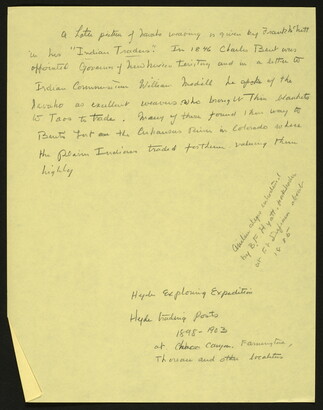 A later picture of Navaho weaving is given by Frank McNitt
in his "Indian Traders". In 1846 Charles Bent was
appointed Governor of New Mexico Territory and in a letter to
Indian Commissioner William Medill he spoke of the
Navaho as excellent weavers who brought their blankets
to Taos to trade. Many of these found their way to
Bents fort on the Arkansas River in Colorado where
the Plains Indians traded for them valuing them
highly
by B.F. Hyatt,
at
about
Hyde Exploring Expedition
Hyde trading Posts
1895-1903
at Chaco Canyon, Farmington,
Thoreau and other locations